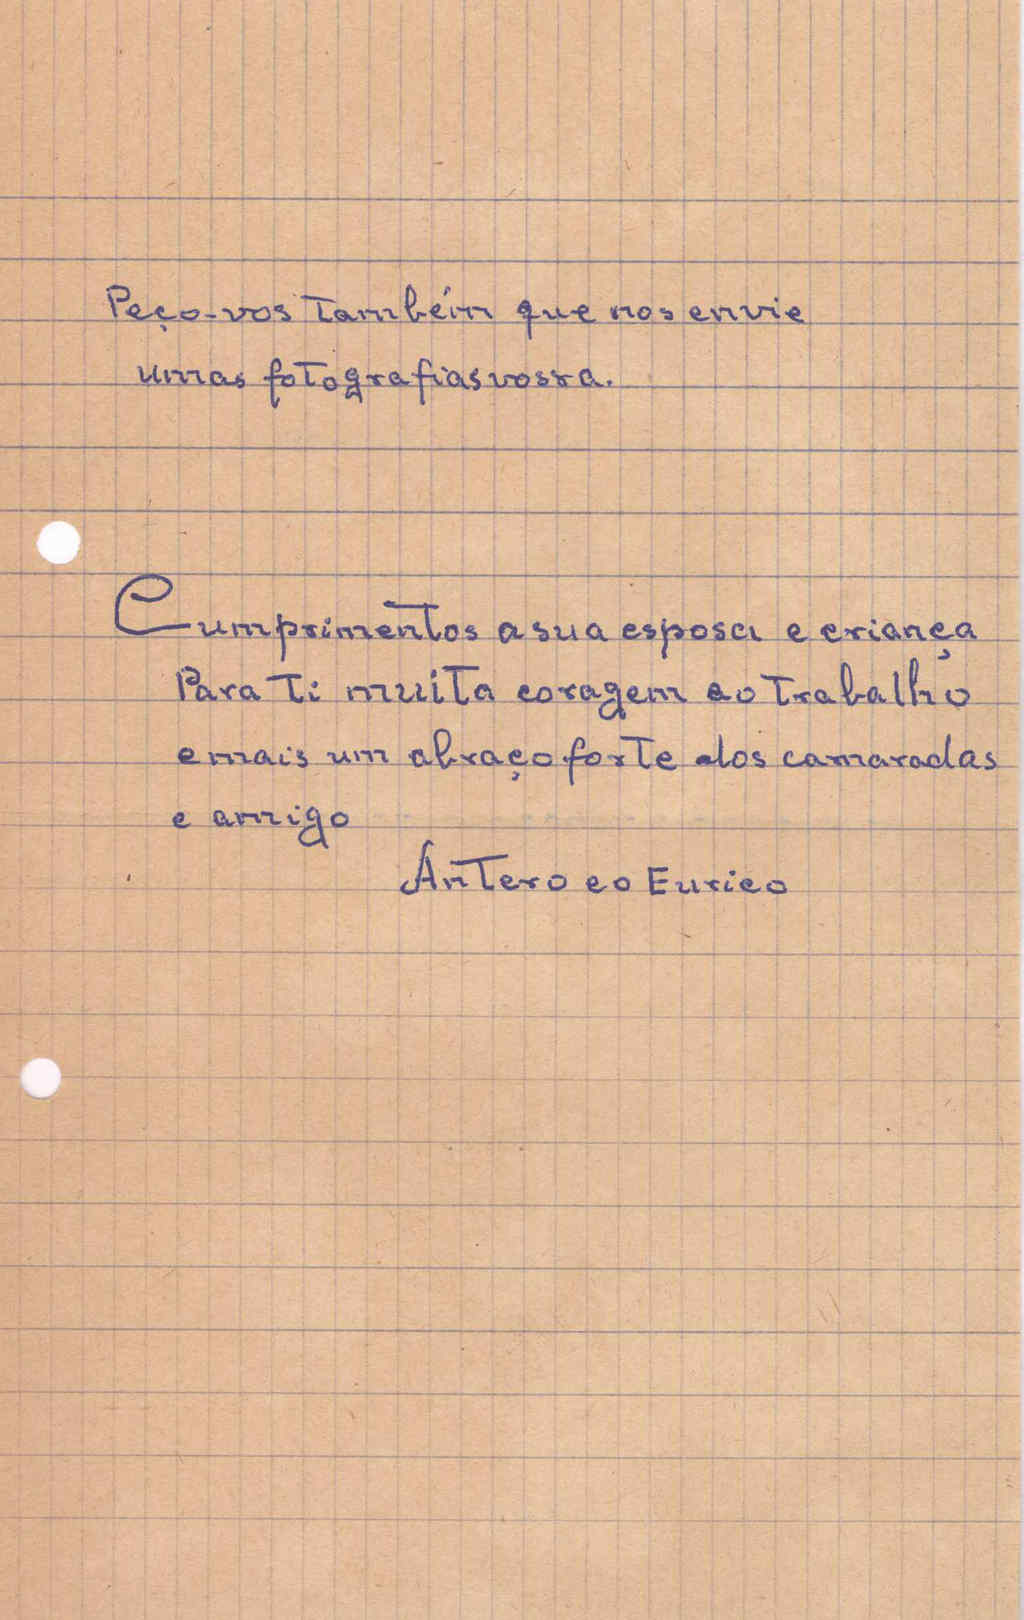 Peço-vos também que nos envie
umas fotografias vossa.
Cumprimentos a sua esposa e criança
Para ti muita coragem ao trabalho
e mais um abraço forte dos camaradas
e amigo
Antero e o Eurico